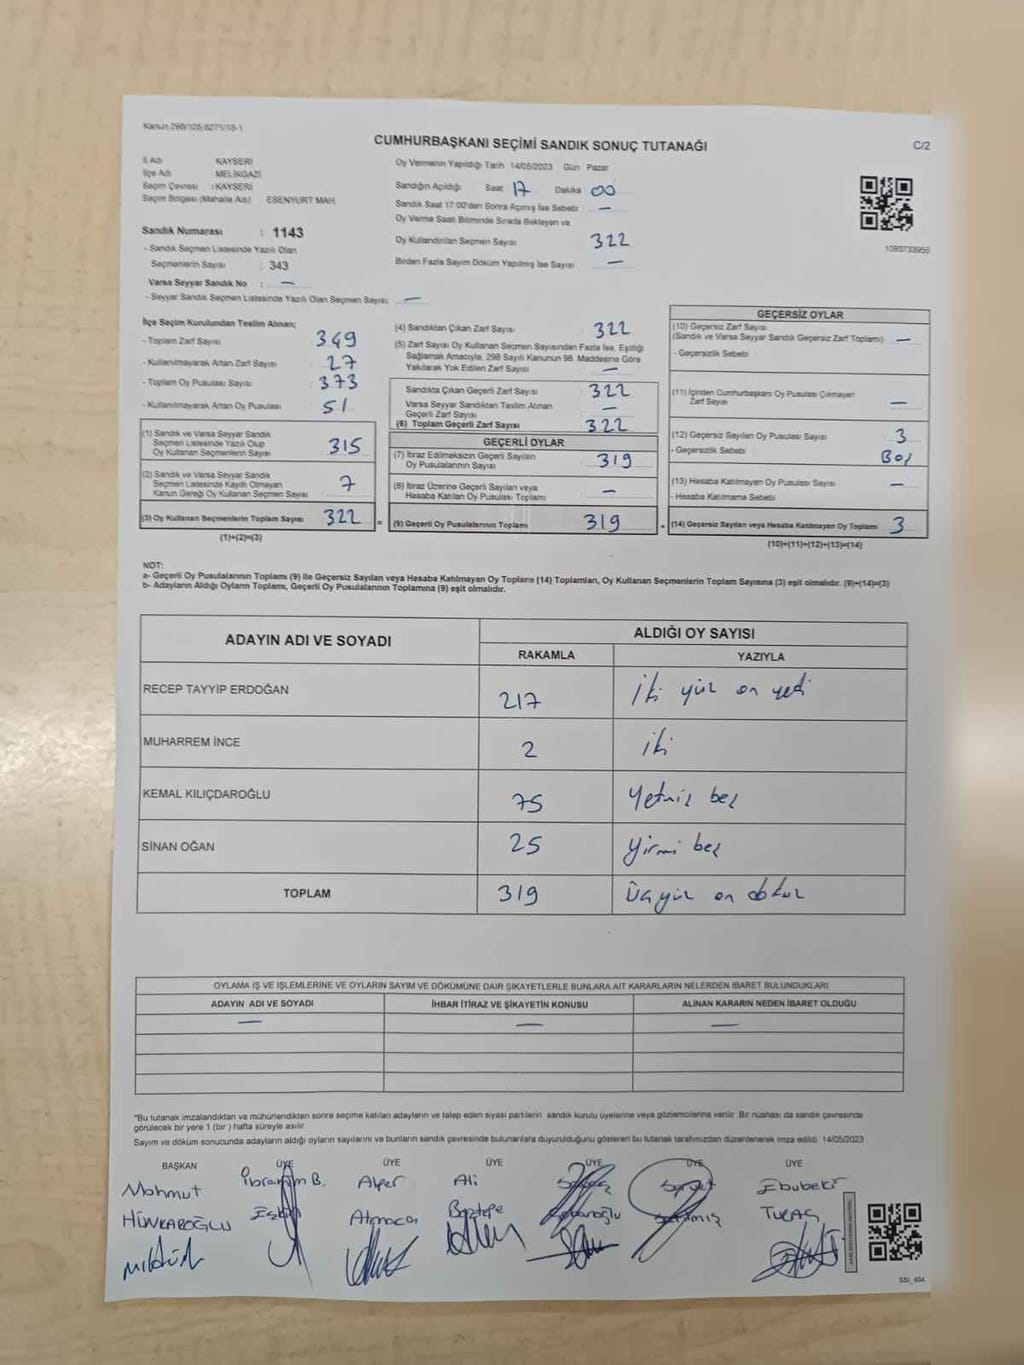 Kanun 298/105;6271/18-1
CUMHURBAŞKANI SEÇİMİ SANDIK SONUÇ TUTANAĞI
C/2
İl Adı KAYSERİ
İlçe Adı MELİKGAZİ
Seçim Çevresi : KAYSERİ
Seçim Bölgesi (Mahalle Adı) ESENYURT MAH.
Oy Vermenin Yapıldığı Tarih : 14/05/2023 Gün : Pazar
Sandığın Açıldığı Saat 17 Dakika 00
Sandık Saat 17:00'dan Sonra Açılmış İse Sebebi —
Oy Verme Saati Bitiminde Sırada Bekleyen ve
Oy Kullandırılan Seçmen Sayısı 322
Birden Fazla Sayım Döküm Yapılmış İse Sayısı —
1093733955
Sandık Numarası : 1143
- Sandık Seçmen Listesinde Yazılı Olan
Seçmenlerin Sayısı : 343
Varsa Seyyar Sandık No : —
- Seyyar Sandık Seçmen Listesinde Yazılı Olan Seçmen Sayısı: —
İlçe Seçim Kurulundan Teslim Alınan;
- Toplam Zarf Sayısı 349
- Kullanılmayarak Artan Zarf Sayısı 27
- Toplam Oy Pusulası Sayısı 373
- Kullanılmayarak Artan Oy Pusulası 51
(1) Sandık ve Varsa Seyyar Sandık
Seçmen Listesinde Yazılı Olup
Oy Kullanan Seçmenlerin Sayısı 315
(2) Sandık ve Varsa Seyyar Sandık
Seçmen Listesinde Kayıtlı Olmayan
Kanun Gereği Oy Kullanan Seçmen Sayısı 7
(3) Oy Kullanan Seçmenlerin Toplam Sayısı 322 =
(1)+(2)=(3)
(4) Sandıktan Çıkan Zarf Sayısı 322
(5) Zarf Sayısı Oy Kullanan Seçmen Sayısından Fazla İse, Eşitliği
Sağlamak Amacıyla, 298 Sayılı Kanunun 98. Maddesine Göre
Yakılarak Yok Edilen Zarf Sayısı —
Sandıkta Çıkan Geçerli Zarf Sayısı 322
Varsa Seyyar Sandıktan Teslim Alınan
Geçerli Zarf Sayısı —
(6) Toplam Geçerli Zarf Sayısı 322
GEÇERLİ OYLAR
(7) İtiraz Edilmeksizin Geçerli Sayılan
Oy Pusulalarının Sayısı 319
(8) İtiraz Üzerine Geçerli Sayılan veya
Hesaba Katılan Oy Pusulası Toplamı —
(9) Geçerli Oy Pusulalarının Toplamı 319 +
GEÇERSİZ OYLAR
(10) Geçersiz Zarf Sayısı
(Sandık ve Varsa Seyyar Sandık Geçersiz Zarf Toplamı) —
- Geçersizlik Sebebi
(11) İçinden Cumhurbaşkanı Oy Pusulası Çıkmayan
Zarf Sayısı —
(12) Geçersiz Sayılan Oy Pusulası Sayısı 3
- Geçersizlik Sebebi Boş
(13) Hesaba Katılmayan Oy Pusulası Sayısı —
- Hesaba Katılmama Sebebi
(14) Geçersiz Sayılan veya Hesaba Katılmayan Oy Toplamı 3
(10)+(11)+(12)+(13)=(14)
NOT:
a- Geçerli Oy Pusulalarının Toplamı (9) ile Geçersiz Sayılan veya Hesaba Katılmayan Oy Toplamı (14) Toplamları, Oy Kullanan Seçmenlerin Toplam Sayısına (3) eşit olmalıdır. (9)+(14)=(3)
b- Adayların Aldığı Oyların Toplamı, Geçerli Oy Pusulalarının Toplamına (9) eşit olmalıdır.
ADAYIN ADI VE SOYADI ALDIĞI OY SAYISI
RAKAMLA YAZIYLA
RECEP TAYYİP ERDOĞAN 217 iki yüz on yedi
MUHARREM İNCE 2 iki
KEMAL KILIÇDAROĞLU 75 Yetmiş beş
SİNAN OĞAN 25 yirmi beş
TOPLAM 319 Üçyüz on dokuz
OYLAMA İŞ VE İŞLEMLERİNE VE OYLARIN SAYIM VE DÖKÜMÜNE DAİR ŞİKAYETLERLE BUNLARA AİT KARARLARIN NELERDEN İBARET BULUNDUKLARI
ADAYIN ADI VE SOYADI İHBAR İTİRAZ VE ŞİKAYETİN KONUSU ALINAN KARARIN NEDEN İBARET OLDUĞU
— — —
*Bu tutanak imzalandıktan ve mühürlendikten sonra seçime katılan adayların ve talep eden siyasi partilerin sandık kurulu üyelerine veya gözlemcilerine verilir. Bir nüshası da sandık çevresinde
görülecek bir yere 1 (bir ) hafta süreyle asılır.
Sayım ve döküm sonucunda adayların aldığı oyların sayılarını ve bunların sandık çevresinde bulunanlara duyurulduğunu gösteren bu tutanak tarafımızdan düzenlenerek imza edildi. 14/05/2023
BAŞKAN ÜYE ÜYE ÜYE ÜYE ÜYE ÜYE
Mahmut İbrahim B. Alper Ali Ebubekir
HÜNKAROĞLU Atmaca Beştepe TURAÇ
SSI_404